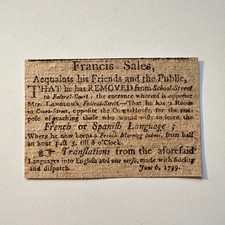 Francis Sales,
Acquaints his Friends and the Public,
THAT he has REMOVED from School-Street
to Federal-Court; the entrance whereof is opposite
Mrs. LANGDON's, Federal-Street.—That he has a Room
in Court-Street, opposite the Court-House, for the purpose
of teaching those who would wish to learn the
French or Spanish Language;
Where he now keeps a French Morning School, from half
an hour past 5, till 8 o'Clock.
Translations from the aforesaid
Languages into English and vice versa, made with fidelity
and dispatch. June 6, 1799.